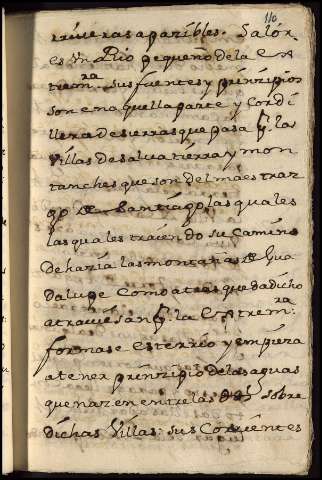 110
rriveras apazibles. Salór
es Vn Rio pequeño de la Ex
trem.ra sus fuentes y prinzipios
son en aquella parte y Cordi
llera de sierras que pasa p.r las
Villas de salua tierra y mon
tanches que son del maestraz
go de Santiago, las quales
las quales traiendo su Camino
de hazia las montañas de Gua
dalupe Como atras queda dicho
atrauiesan p.r la Extrem.ra
formase este rrio y empieza
a tener prinzipio de las aguas
que nazen entre las sobre
dichas Villas: sus Corrientes